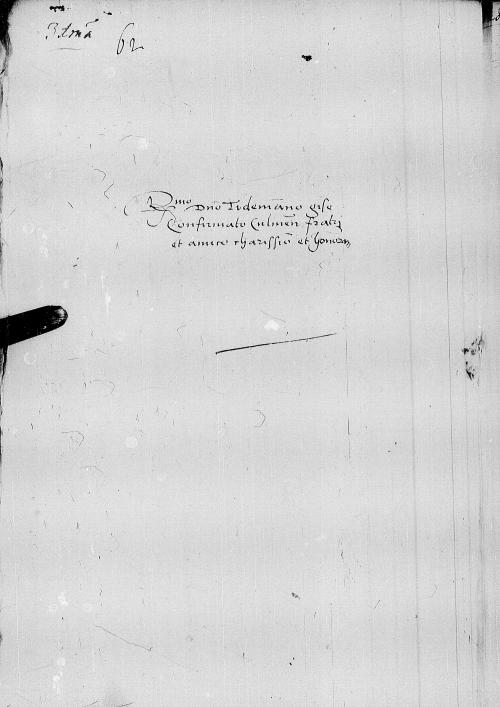 62
Rmo Dno Tidemāno gise
Confirmato Culmeñ Fratri
et amico charissīo et honoran